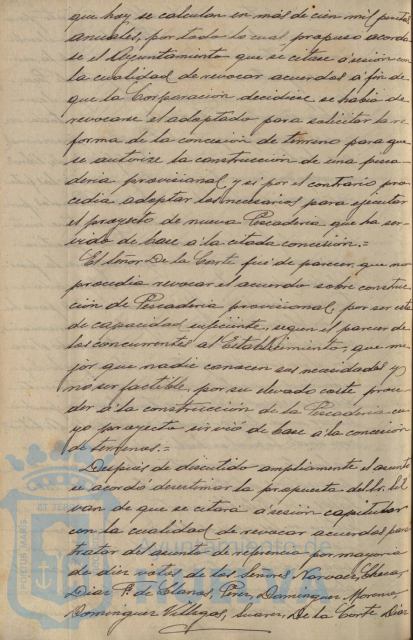 que hoy se calculan en más de cien mil pesetas
anuales, por todo lo cual propuso acorda
se el Ayuntamiento que se citase á sesión con
la cualidad de revocar acuerdos á fin de
que la Corporación decidiese se había de
revocarse el adoptado para solicitar la re
forma de la concesión de terreno para que
se autorize la construcción de una pesca
deria provisional y si por el contrario pro
cedia adoptar los necesarios para ejecutar
el proyecto de nueva Pescaderia que ha ser
vido de base á la citada concesión.=
El señor De la Corte fué de parecer que no
procedia revocar el acuerdo sobre construc
ción de Pescaderia provisional, por ser esta
de capacidad suficiente, según el parecer de
los concurrentes al Establecimiento, que me
jor que nadie conocen sus necesidades y
no ser factible, por su elevado coste proce
der á la construcción de la Pescaderia cu
yo proyecto sirvió de base á la concesión
de terrenos.=
Después de discutido ampliamente el asunto
se acordó desestimar la propuesta del Sr.
van de que se citara á sesión capitular
con la cualidad de revocar acuerdos para
tratar del asunto de referencia por mayoria
de diez votos de los Señores Narvaez, Checa,
Diaz F. de Llanos, Perez, Dominguez Moreno,
Dominguez Villegas, Suarez, De la Corte Diaz
PORTUS MARIS
Ayuntamiento de